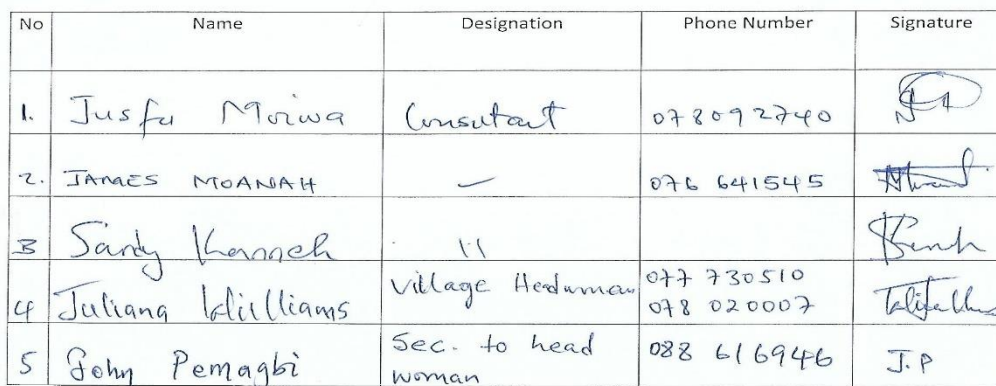 No Name Designation Phone Number Signature
1. Jusfu Moiwa Consutant 078092740
2. JAMES MOANAH — 076 641545
3 Sandy Kanneh 11
4 Juliana Williams Village Hedwman 077 730510
078 020007
5 John Pemagbi Sec. to head woman 088 616946 J.P